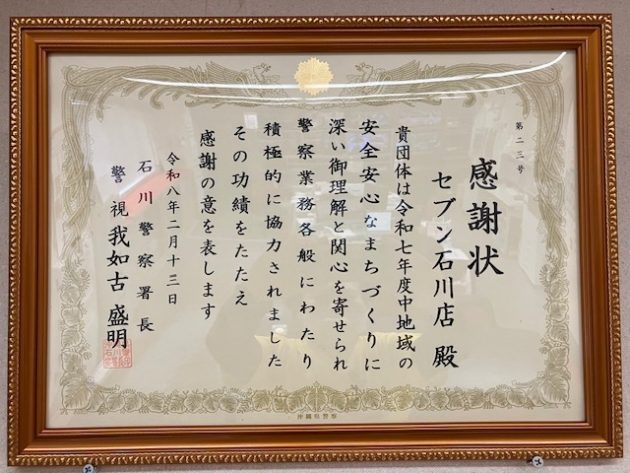 第二三号
感謝状
セブン石川店 殿
貴団体は令和七年度中地域の
安全安心なまちづくりに
深い御理解と関心を寄せられ
警察業務各般にわたり
積極的に協力されました
その功績をたたえ
感謝の意を表します
令和八年二月十三日
石川警察署長
警視 我如古 盛明
沖縄県警察